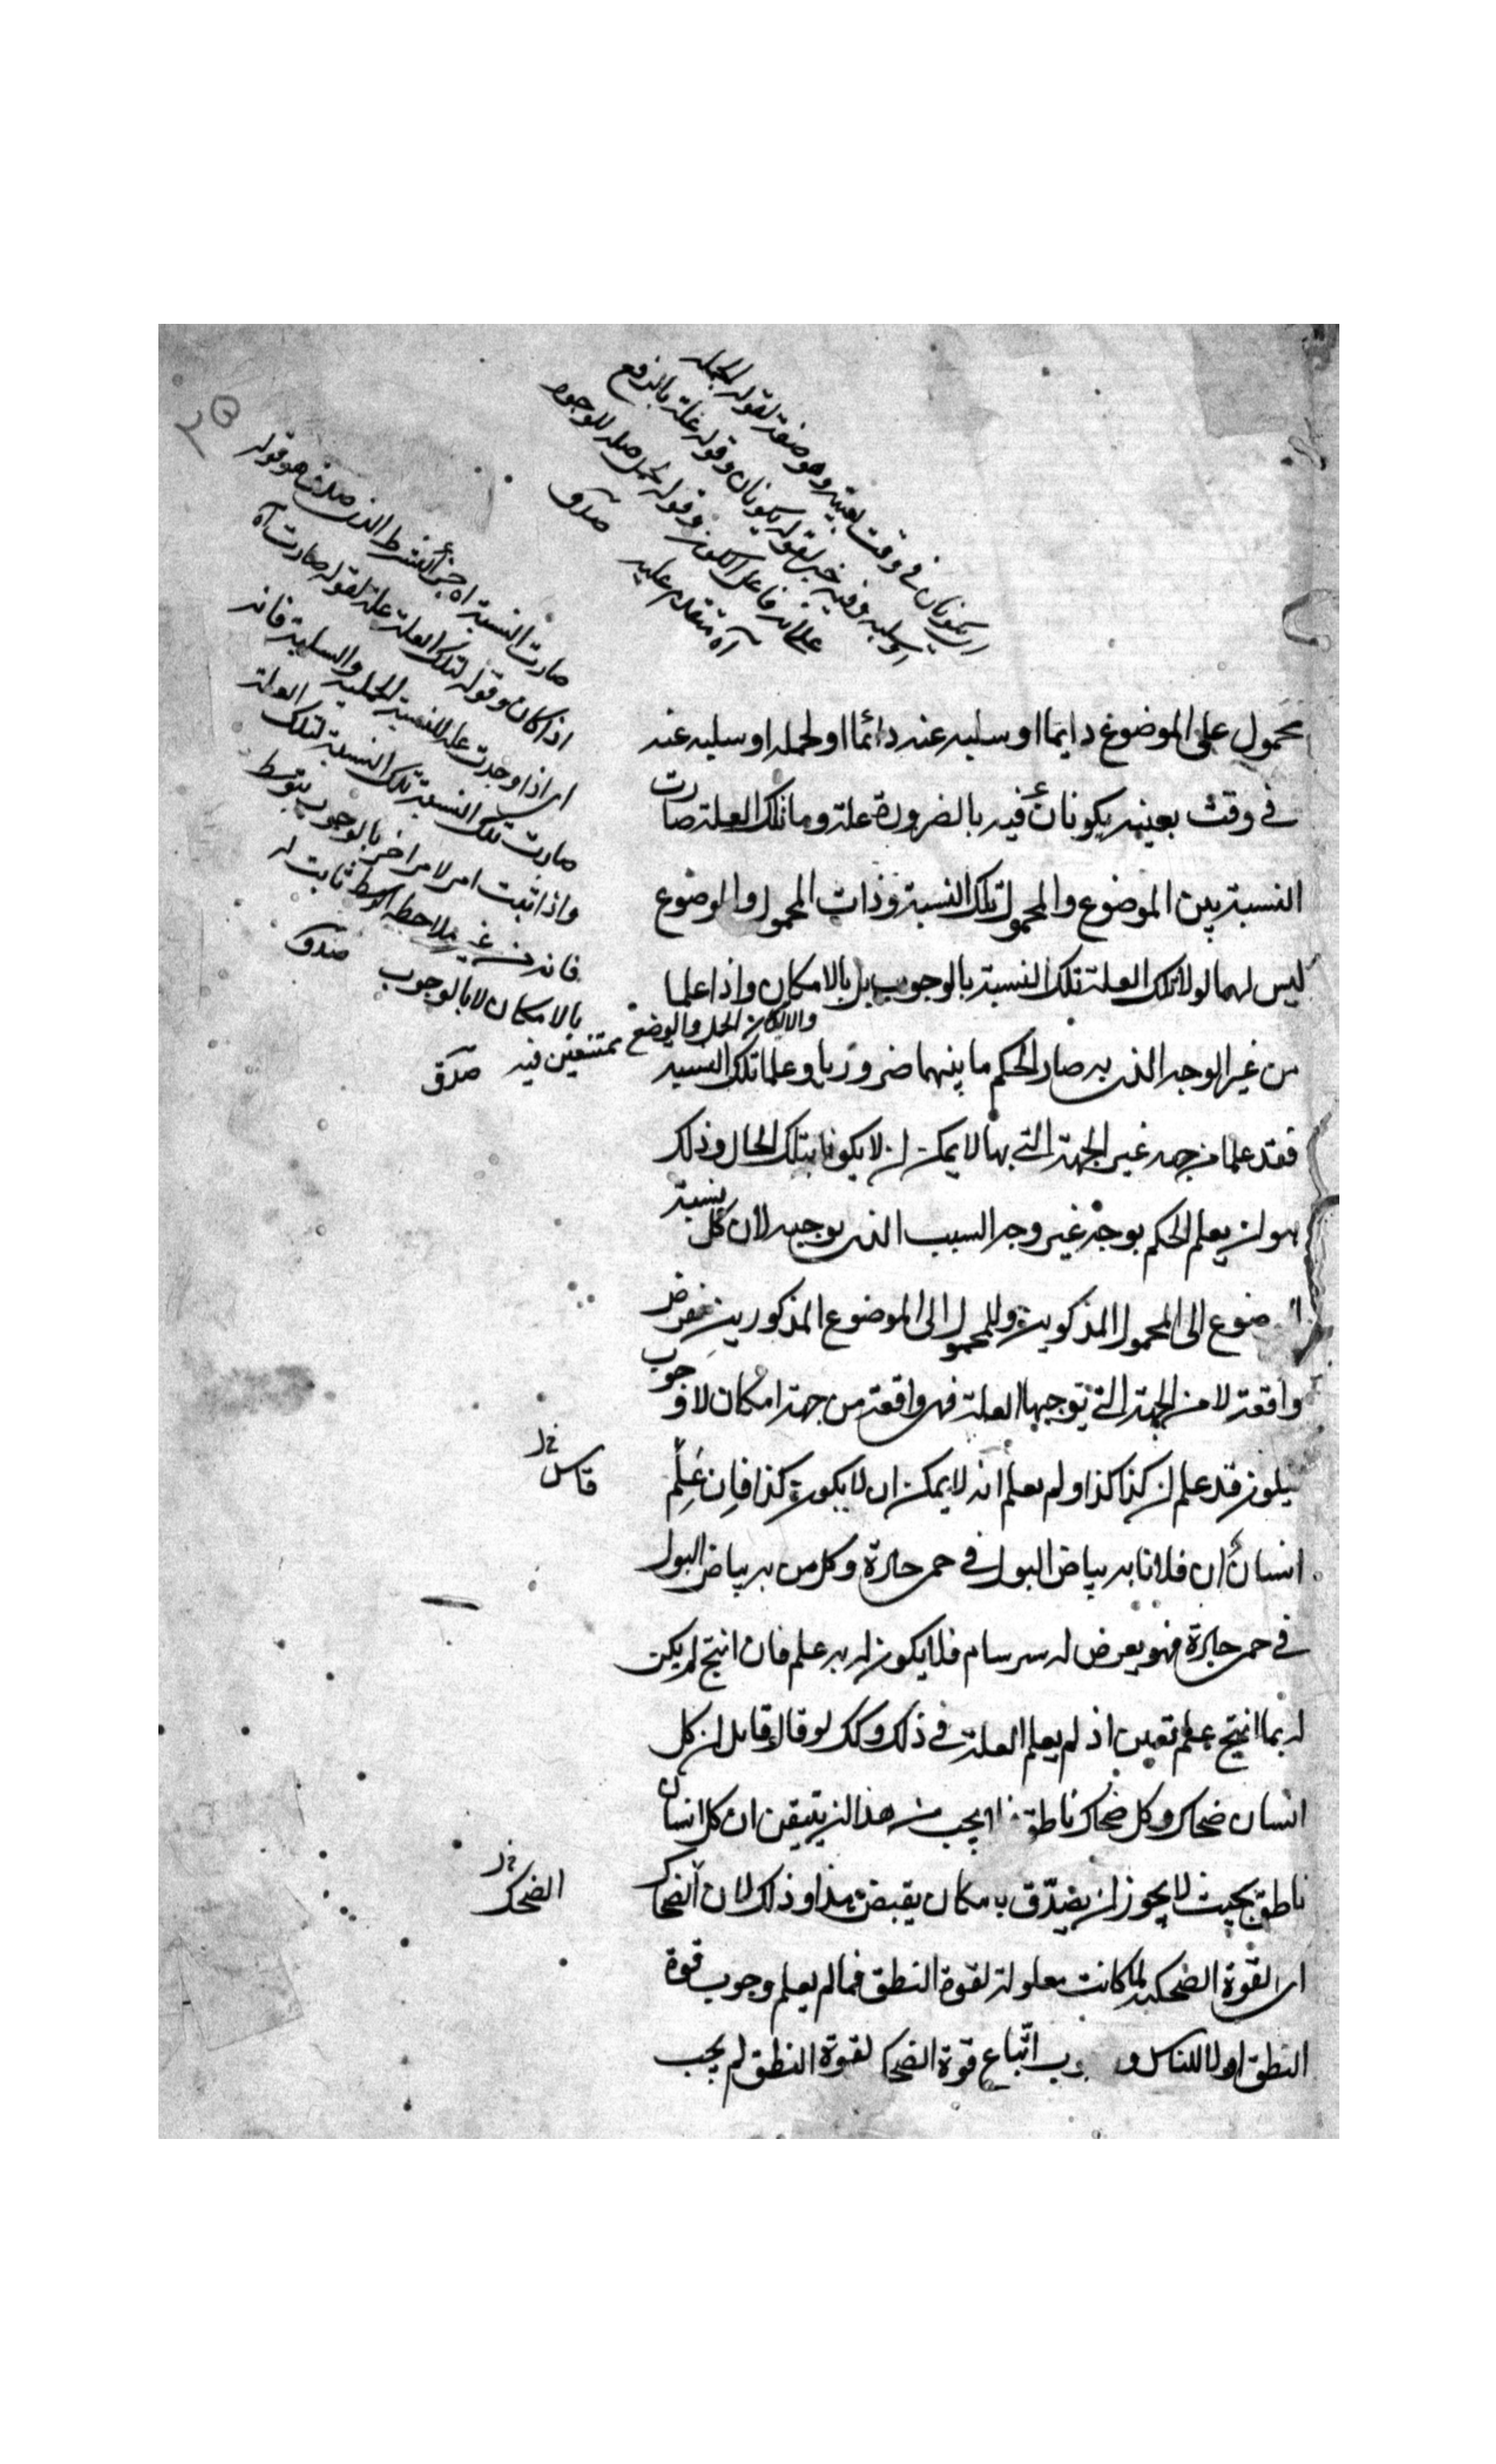 اي يكونان في وقت بعينه وهو صفة لقوله لحمله
او سلبه وفيه خبر لقوله يكونان وقوله علة بالرفع
على انه فاعل الكون وقوله لحمل صلة للوجوه
آه متقدم عليه صدق
صارت النسبة اه جزأ للشرط الذي هو قوله
اذا كان وقوله لتلك العلة علة لقوله صارت آه
اي اذا وجدت علة للنسبة الحملية والسلبية فانه
صارت تلك النسبة تلك النسبة لتلك العلة
واذا ثبت امر لامر اخر بالوجوب بتوسط
فانه من غير ملاحظة الوسط ثابت له
بالامكان لا بالوجوب صدق
محمول على الموضوع دايما او سلبه عنه دائما او لحمله او سلبه عنه
في وقت بعينه يكونان فيه بالضرورة علة وما تلك العلة صارت
النسبة بين الموضوع والمحمول تلك النسبة وذات المحمول والموضوع
ليس لهما لولا تلك العلة تلك النسبة بالوجوب بل بالامكان واذا علما
والا لكان الحمل والوضع ممتنعين فيه صدق
من غير الوجه الذي به صار الحكم ما بينهما ضروريا وعلما تلك النسبة
فقد علما من جهة غير الجهة التي بها لا يمكن ان لا يكونا بتلك الحال وذلك
هو ان يعلم الحكم بوجه غير وجه السبب الذي يوجبه لان كل نسبة
ضوع الى المحمول المذكورين وللمحمول الى الموضوع المذكورين تفرض
واقعة لا من الجهة التي توجبها العلة فهي واقعة من جهة امكان لا وجوب
فيكون قد علم ان كذا كذا ولم يعلم انه لا يمكن ان لا يكون كذا فإن عَلِمَ
انسان ان فلانا به بياض البول في حمى حارة وكل من به بياض البول
في حمى حارة فهو يعرض له سرسام فلا يكون له به علم فان انتج لم يكن
له بما انتج علم تعين اذ لم يعلم العلة في ذلك وكك لو قال قائل ان كل
انسان ضحاك وكل ضحاك ناطق يجب من هذا ان يتيقن ان كل انسان
ناطق بحيث لا يجوز ان يصدّق بامكان نقيض هذا وذلك لان الضحاك
الضحك خ
اي القوة الضحكية لما كانت معلولة لقوة النطق فما لم يعلم وجوب قوة
النطق اولا للناس و وب اتّباع قوة الضحك لقوة النطق لم يجب